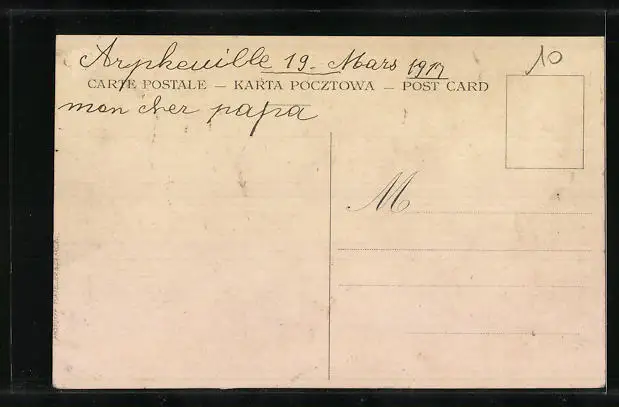 19. Mars 1917
10
CARTE POSTALE — KARTA POCZTOWA — POST CARD
mon cher papa
M